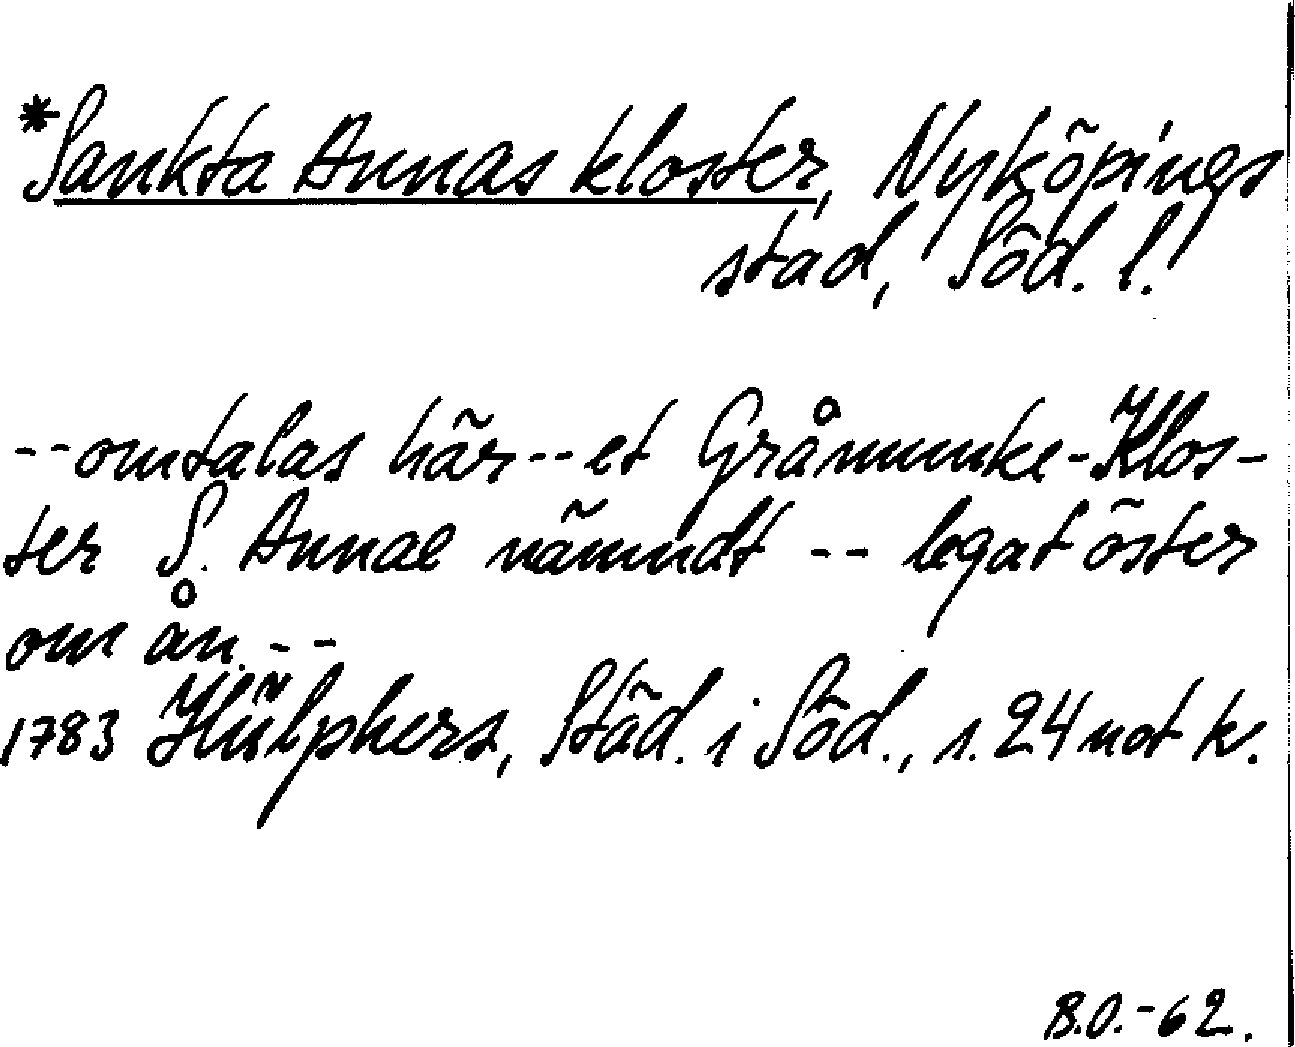 *Sankta Annas kloster, Nyköpings
stad, Söd. l.
--omtalas här--et Gråmunke-Klos-
ter S. Annae nämndt -- legat öster
om ån.--
1783 Hülphers, Städ. i Söd., s. 24 not k.
B.O.-62.